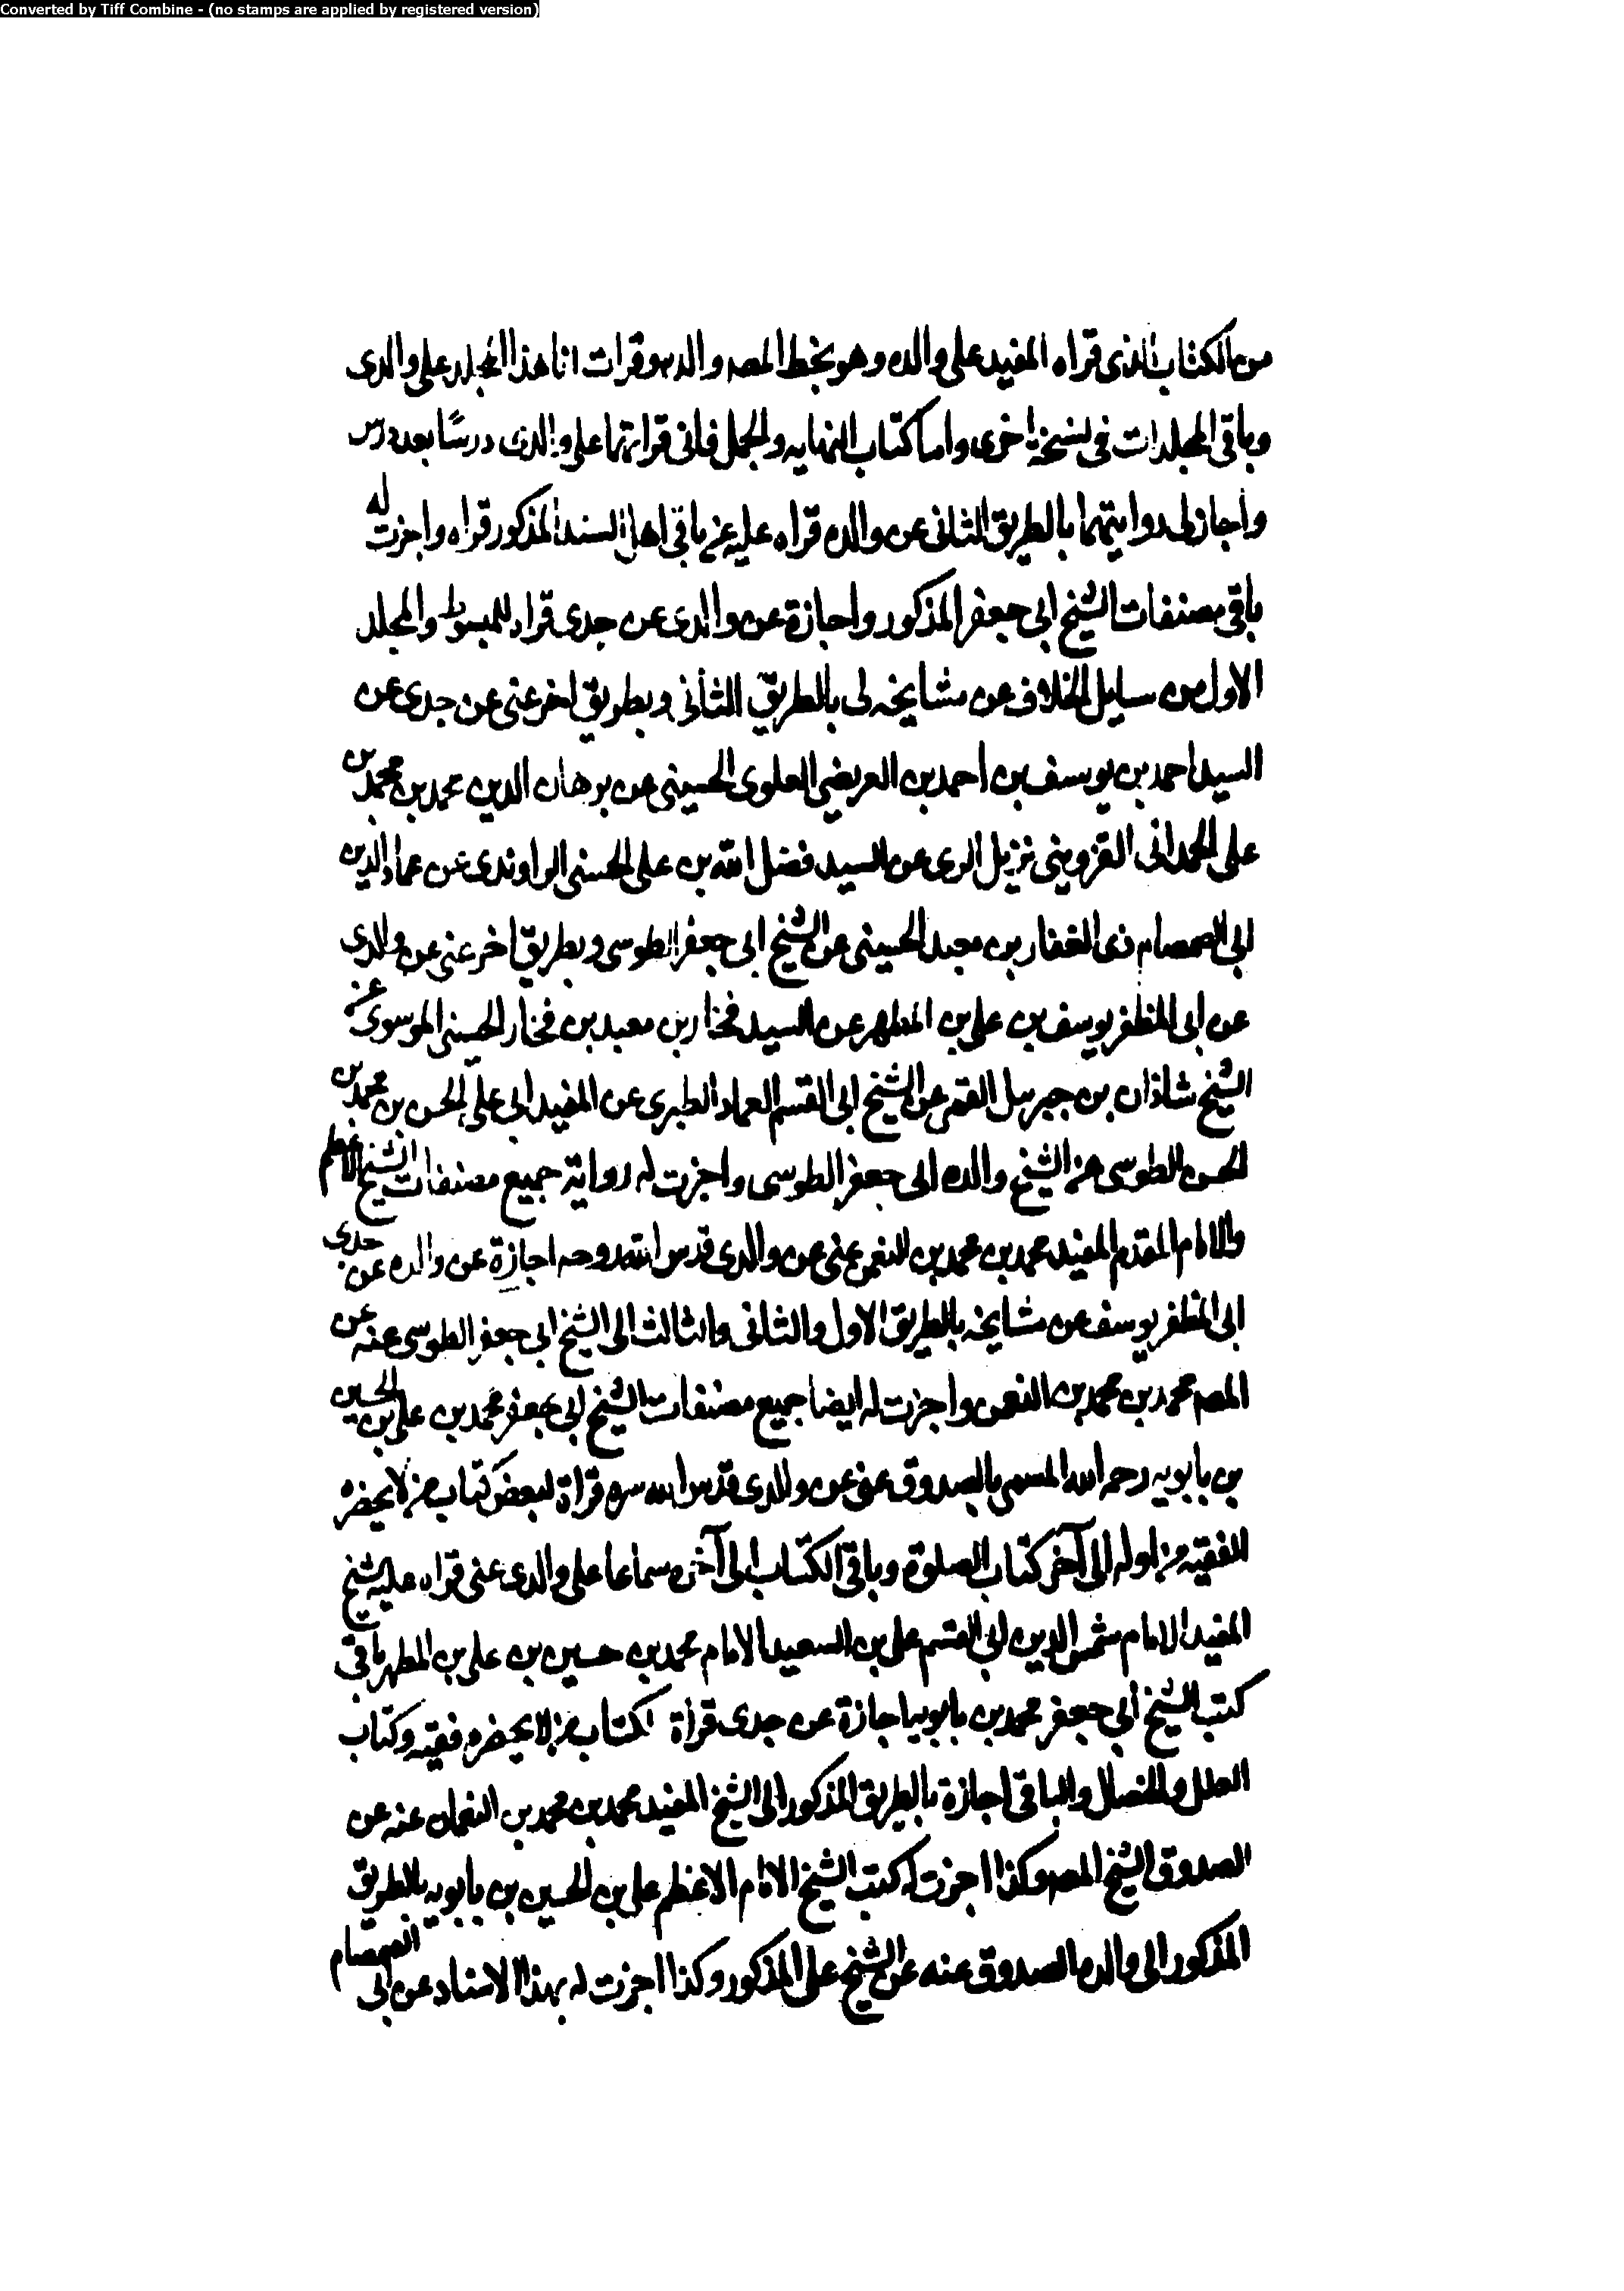 Converted by Tiff Combine - (no stamps are applied by registered version)
من الكتاب الذي قراه المفيد على والده وهو بخط المصـ والدسـ وقرات انا هذا المجلد على والدى
وباقى المجلدات فى نسخة اخرى واما كتاب النهايه والجمل فانى قراتهما على والدى درسًا بعد درس
واجاز لى روايتهما بالطريق الثانى عن والده قراه عليه عن باقى اهل السند المذكور قراه واجزت له
باقى مصنفات الشيخ ابى جعفر المذكور واجازة عن والدى عن جدى قراه للمبسوط والمجلد
الاول من سايل الخلاف عن مشايخه لى بالطريق الثانى وبطريق اخر عنى عن جدى عن
السيد احمد بن يوسف بن احمد بن العريضى العلوى الحسينى عن برهان الدين محمد بن محمد بن
على الحمدانى القزوينى نزيل الرى عن السيد فضل الله بن على الحسنى الراوندى عن عماد الدين
ابى الصمصام ذى الفقار بن معبد الحسينى عن الشيخ ابى جعفر الطوسى وبطريق اخر عنى عن والدى
عن ابى المظفر يوسف بن على بن المطهر عن السيد فخار بن معبد بن فخار الحسينى الموسوى عن
الشيخ شاذان بن جبرئيل القمى عن الشيخ ابى القسم العماد الطبرى عن المفيد ابى على الحسن بن محمد بن
الحسن الطوسى عن الشيخ والده ابى جعفر الطوسى واجزت له رواية جميع مصنفات الشيخ الاعظم
والامام المقدم المفيد محمد بن محمد بن النعمن عنى عن والدى قدس الله روحه اجازة عن والده عن جدى
ابى المظفر يوسف عن مشايخه بالطريق الاول والثانى والثالث الى الشيخ ابى جعفر الطوسى عنه عن
المصـ محمد بن محمد بن النعمن واجزت له ايضا جميع مصنفات الشيخ ابى جعفر محمد بن على بن الحسين
بن بابويه رحمه الله المسمى بالصدوق عنى عن والدى قدس الله سره قراة لبعض كتاب من لا يحضره
الفقيه من اوله الى آخر كتاب الصلوة وباقى الكتاب الى آخره سماعا على والدى عنى قراه عليه شيخ
المفيد الامام شمس الدين ابى القسم على بن السعيد الامام محمد بن حسين بن على بن المطهر باقى
كتب الشيخ ابى جعفر محمد بن بابويه اجازة عن جدى قراة لكتاب من لا يحضره فقيه وكتاب
العلل والخصال والباقى اجازة بالطريق المذكور الى الشيخ المفيد محمد بن محمد بن النعمان عنه عن
الصدوق الشيخ المصـ وكذا اجزت له كتب الشيخ الامام الاعظم على بن الحسين بن بابويه بالطريق
المذكور الى والده الصدوق عنه عن الشيخ على المذكور وكذا اجزت له بهذا الاسناد عن ابى الصمصام